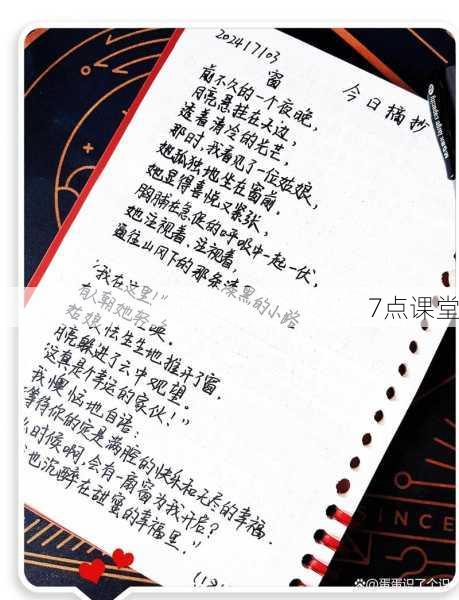 202417103
今日摘抄
窗
前不久的一个夜晚，
月亮悬挂在天边，
透着清冷的光芒，
那时，我看见了一位姑娘，
她孤独地坐在窗前，
她显得喜悦又紧张，
胸脯在急促的呼吸中一起一伏，
她注视着，注视着，
通往山冈下的那条漆黑的小路
“我在这里！”
有人朝她轻唤。
姑娘怯生生地推开了窗，
月亮躲进了云中观望。
这真是个幸运的家伙！”
我懊恼地自语：
等待你的定是满腔的快乐和无尽的幸福，
么时候啊，会有一扇窗为我开启？
也沉醉在甜蜜的幸福里。”
7点课堂
SINCE
Baidu百家号@蛋蛋识了个识